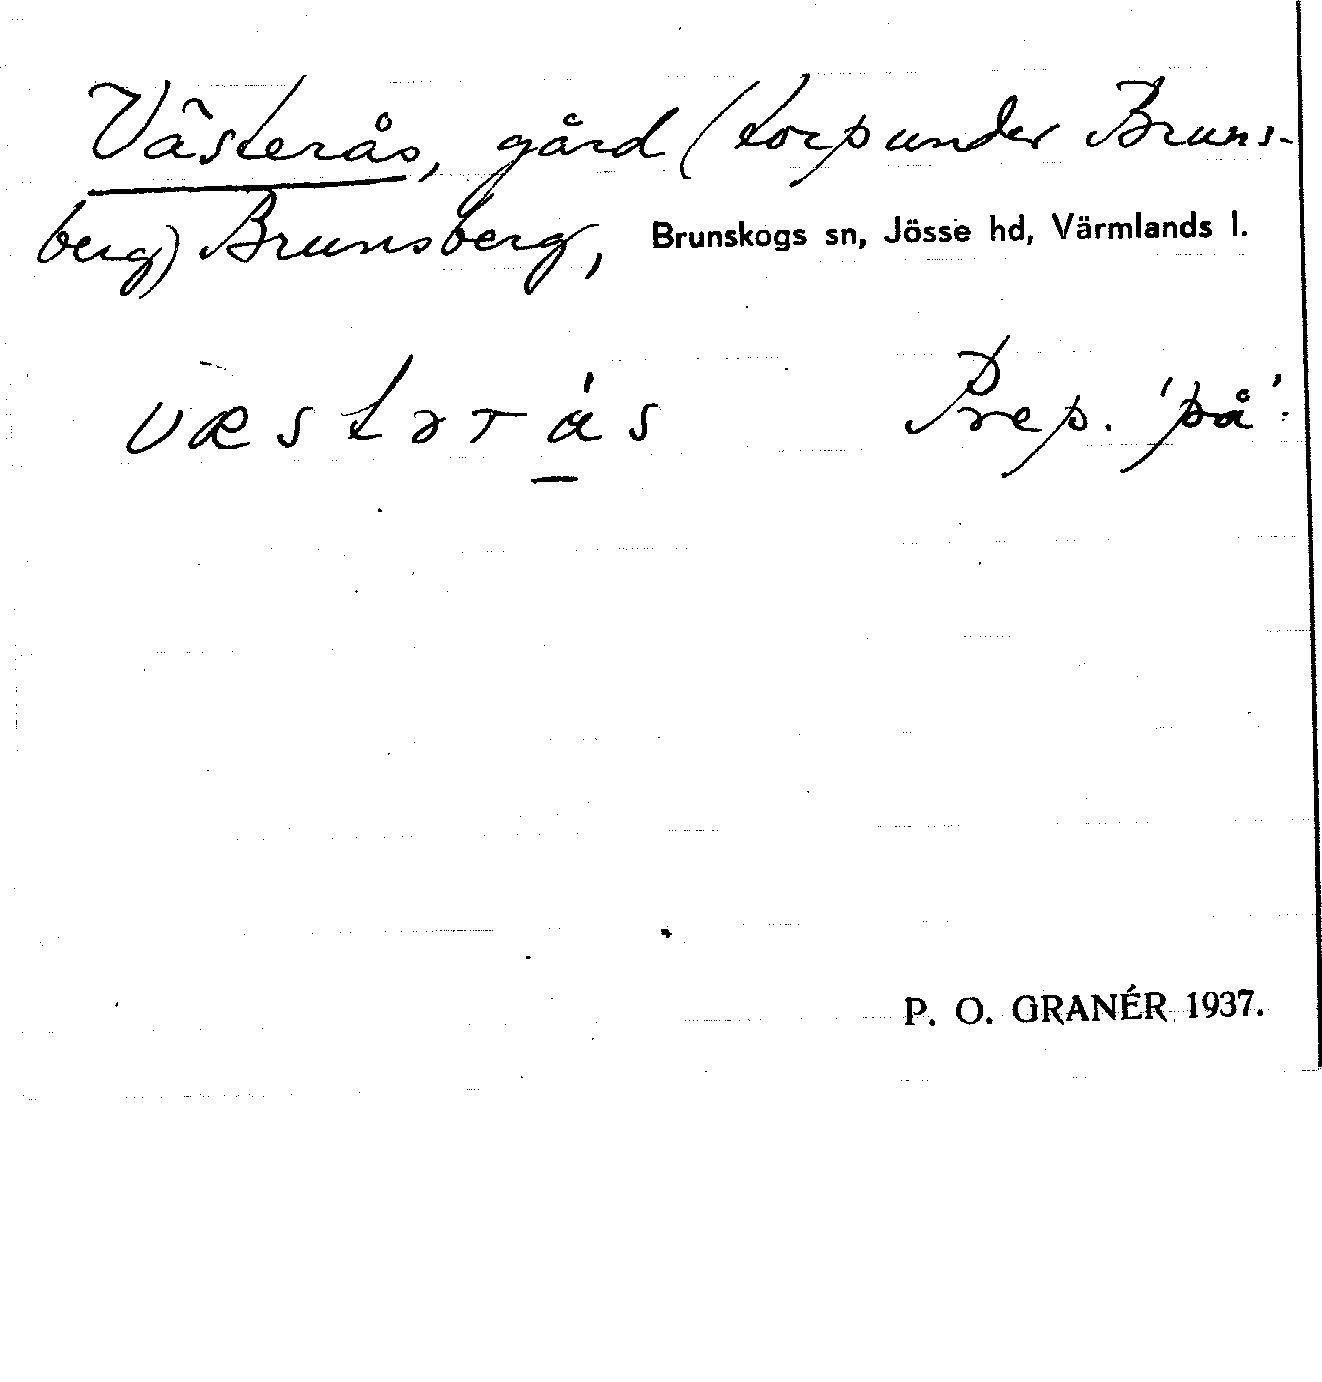 Västerås, gård (torp under Bruns-
berg) Brunsberg, Brunskogs sn, Jösse hd, Värmlands l.
væstərás Prep. 'på'.
P. O. GRANÉR 1937.